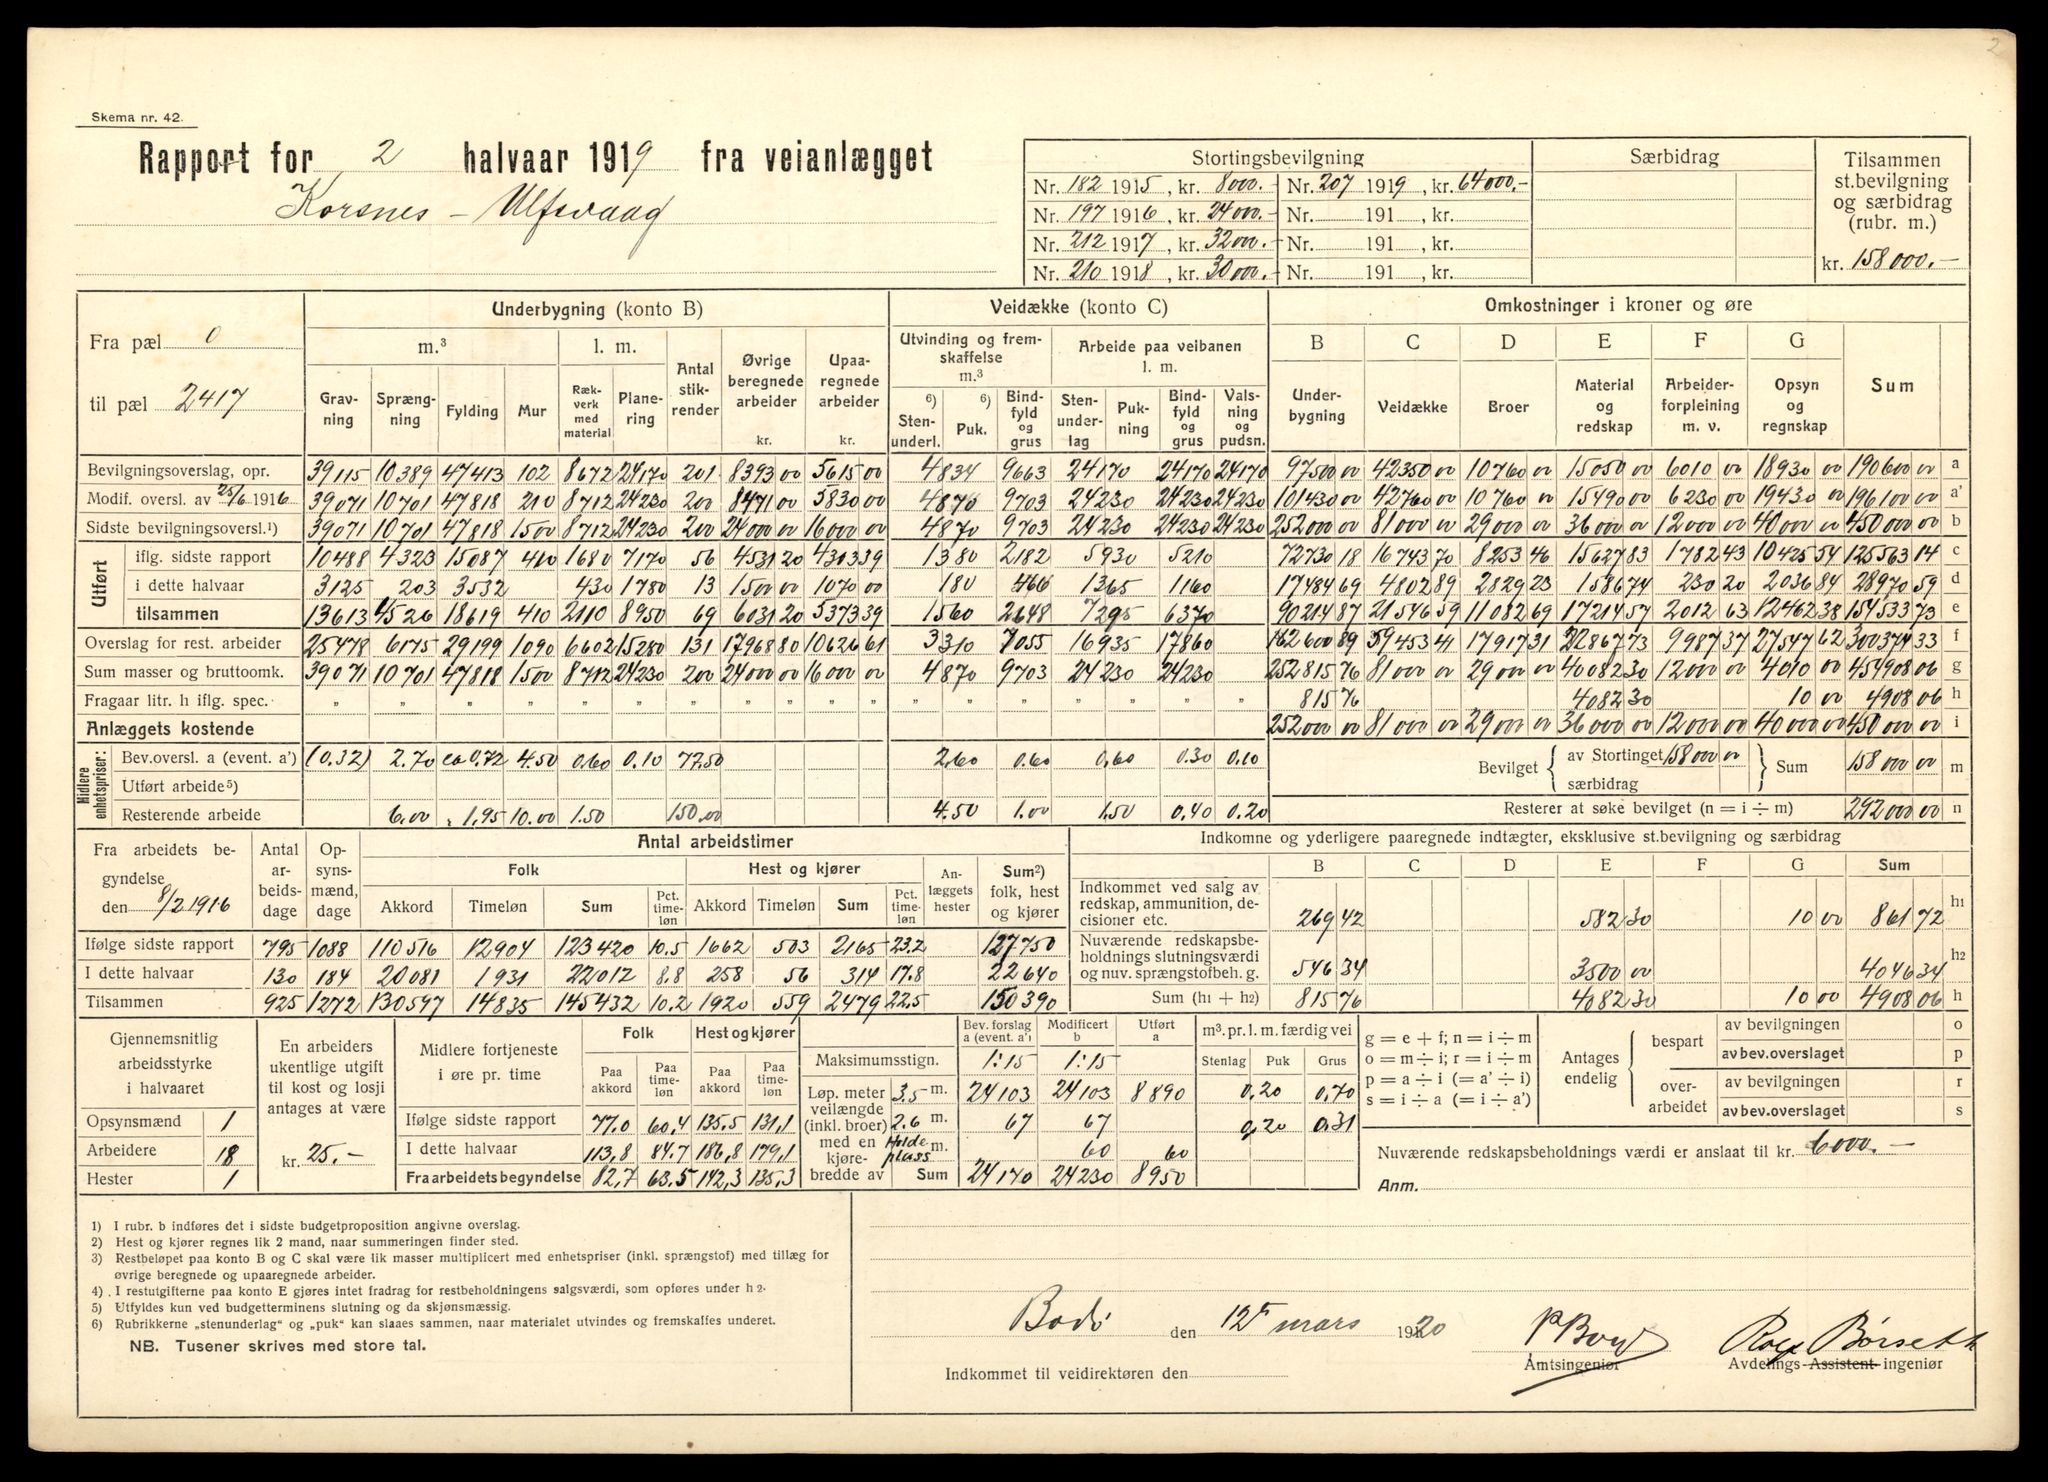 2
Skema nr. 42.
Rapport for 2 halvaar 1919 fra veianlægget
Korsnes - Ulfsvaag
Stortingsbevilgning Særbidrag Tilsammen st.bevilgning og særbidrag (rubr. m.)
Nr. 182 1915, kr. 8000.- Nr. 207 1919, kr. 64000.-
Nr. 197 1916, kr. 24000.- Nr. 191 , kr.
Nr. 212 1917, kr. 32000.- Nr. 191 , kr.
Nr. 210 1918, kr. 30000.- Nr. 191 , kr. kr. 158000.-
Fra pæl 0
til pæl 2417
Underbygning (konto B) Veidække (konto C) Omkostninger i kroner og øre
m.³ l. m. Antal stikrender Øvrige beregnede arbeider kr. Upaaregnede arbeider kr. Utvinding og fremskaffelse m.³ Arbeide paa veibanen l. m. B C D E F G Sum
Gravning Sprængning Fylding Mur Rækverk med material Planering 6) Stenunderl. 6) Puk. Bindfyld og grus Stenunderlag Pukning Bindfyld og grus Valsning og pudsn. Underbygning Veidække Broer Material og redskap Arbeiderforpleining m. v. Opsyn og regnskap
Bevilgningsoverslag, opr. 39115 10389 47413 102 8672 24170 201 8393 00 5615 00 4834 9663 24170 24170 24170 97500 00 42350 00 10760 00 15050 00 6010 00 18930 00 190600 00 a
Modif. oversl. av 25/6 1916 39071 10701 47818 210 8712 24230 200 8471 00 5830 00 4870 9703 24230 24230 24230 101430 00 42760 00 10760 00 15490 00 6230 00 19430 00 196100 00 a'
Sidste bevilgningsoversl.¹) 39071 10701 47818 1500 8712 24230 200 24000 00 16000 00 4870 9703 24230 24230 24230 252000 00 81000 00 29000 00 36000 00 12000 00 40000 00 450000 00 b
Utført
iflg. sidste rapport 10488 4323 15087 410 1680 7170 56 4531 20 4303 39 1380 2182 5930 5210 72730 18 16743 70 8253 46 15627 83 1782 43 10425 54 125563 14 c
i dette halvaar 3125 203 3532 430 1780 13 1500 00 1070 00 180 466 1365 1160 17484 69 4802 89 2829 23 1586 74 230 20 2036 84 28970 59 d
tilsammen 13613 4526 18619 410 2110 8950 69 6031 20 5373 39 1560 2648 7295 6370 90214 87 21546 59 11082 69 17214 57 2012 63 12462 38 154533 73 e
Overslag for rest. arbeider 25478 6175 29199 1090 6602 15280 131 17968 80 10626 61 3310 7055 16935 17860 162600 89 59453 41 17917 31 22867 73 9987 37 27547 62 300374 33 f
Sum masser og bruttoomk. 39071 10701 47818 1500 8712 24230 200 24000 00 16000 00 4870 9703 24230 24230 252815 76 81000 00 29000 00 40082 30 12000 00 4010 00 454908 06 g
Fragaar litr. h iflg. spec. " " " " " " " " " " " " " " " 815 76 4082 30 10 00 4908 06 h
Anlæggets kostende 252000 00 81000 00 29000 00 36000 00 12000 00 40000 00 450000 00 i
Midlere enhetspriser:
Bev.oversl. a (event. a') (0.32) 2.70 ca 0.72 4.50 0.60 0.10 77.50 2.60 0.60 0.60 0.30 0.10 Bevilget av Stortinget 158000 00 Sum 158000 00 m
Utført arbeide⁵) særbidrag
Resterende arbeide 6.00 " 1.95 10.00 1.50 150.00 4.50 1.00 1.50 0.40 0.20 Resterer at søke bevilget (n = i ÷ m) 292000 00 n
Fra arbeidets begyndelse den 8/2 1916 Antal arbeidsdage Opsynsmænd, dage Antal arbeidstimer
Folk Hest og kjører Anlæggets hester Sum²) folk, hest og kjører
Akkord Timeløn Sum Pct. timeløn Akkord Timeløn Sum Pct. timeløn
Ifølge sidste rapport 795 1088 110516 12904 123420 10.5 1662 503 2165 23.2 127750
I dette halvaar 130 184 20081 1931 22012 8.8 258 56 314 17.8 22640
Tilsammen 925 1272 130597 14835 145432 10.2 1920 559 2479 22.5 150390
Indkomne og yderligere paaregnede indtægter, eksklusive st.bevilgning og særbidrag
B C D E F G Sum
Indkommet ved salg av redskap, ammunition, decisioner etc. 269 42 582 30 10 00 861 72 h1
Nuværende redskapsbeholdnings slutningsværdi og nuv. sprængstofbeh. g. 546 34 3500 00 4046 34 h2
Sum (h1 + h2) 815 76 4082 30 10 00 4908 06 h
Gjennemsnitlig arbeidsstyrke i halvaaret
Opsynsmænd 1
Arbeidere 18
Hester 1
En arbeiders ukentlige utgift til kost og losji antages at være
kr. 25.-
Midlere fortjeneste i øre pr. time Folk Hest og kjører
Paa akkord Paa timeløn Paa akkord Paa timeløn
Ifølge sidste rapport 77.0 60.4 135.5 131.1
I dette halvaar 113,8 84.7 186,8 179,1
Fra arbeidets begyndelse 82,7 63.5 142,3 135,3
Bev. forslag a (event. a') Modificert b Utført a
Maksimumsstign. 1:15 1:15
Løp. meter veilængde (inkl. broer) med en kjørebredde av
3.5 m. 24103 24103 8890
2.6 m. 67 67
Holdeplass m. 60 60
Sum 24170 24230 8950
m³. pr. l. m. færdig vei
Stenlag Puk Grus
0,20 0,70
0,20 0,31
g = e + f; n = i ÷ m
o = m ÷ i; r = i ÷ m
p = a ÷ i (= a' ÷ i)
s = i ÷ a (= i ÷ a')
Antages endelig
bespart av bevilgningen o
av bev.overslaget p
overarbeidet av bevilgningen r
av bev.overslaget s
Nuværende redskapsbeholdnings værdi er anslaat til kr. 6000.-
Anm.
1) I rubr. b indføres det i sidste budgetproposition angivne overslag.
2) Hest og kjører regnes lik 2 mand, naar summeringen finder sted.
3) Restbeløpet paa konto B og C skal være lik masser multiplicert med enhetspriser (inkl. sprængstof) med tillæg for
øvrige beregnede og upaaregnede arbeider.
4) I restutgifterne paa konto E gjøres intet fradrag for restbeholdningens salgsværdi, som opføres under h 2.
5) Utfyldes kun ved budgetterminens slutning og da skjønsmæssig.
6) Rubrikkerne „stenunderlag" og „puk" kan slaaes sammen, naar materialet utvindes og fremskaffes underet.
NB. Tusener skrives med store tal.
Bodø den 12te mars 1920
Amtsingeniør
Børseth
Avdelings- Assistent- ingeniør
Indkommet til veidirektøren den